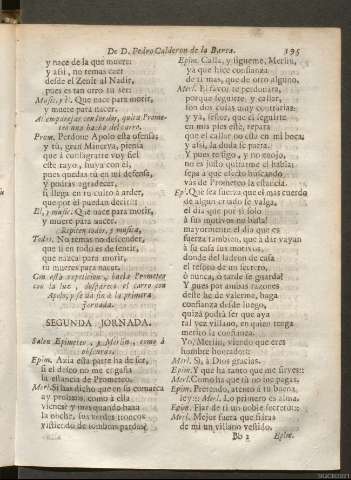 De D. Pedro Calderon de la Barca. 195
y nace de la que muere:
y assi, no temas caer
desde el Zenit al Nadir,
pues es tan otro tu ser:
Music. y èl. Que nace para morir,
y muere para nacer.
Al emparejar con los dos, quita Prometeo
una hacha del carro.
Prom. Perdone Apolo esta ofensa;
y tù, gran Minerva, piensa
que à consagrarte voy fiel
este rayo, huya con èl,
pues quedas tù en mi defensa,
y podràs agradecer,
si llega en tu culto à arder,
que por èl puedan decir:
El, y music. Que nace para morir,
y muere para nacer.
Repiten todos, y musica,
Todos. No temas no descender,
que si en todo es de sentir,
que nazca para morir,
tu mueres para nacer.
Con esta repeticion, baxa Prometeo
con la luz, desparece el carro con
Apolo, y se dà fin à la primera
Jornada.
SEGUNDA JORNADA.
Salen Epimeteo, y Merlin, como à
obscuras.
Epim. Azia esta parte ha de ser,
si el deseo no me engaña
la estancia de Prometeo.
Merl. Si has dicho que en su comarca
ay prodigios, como à ella
vienes? y mas quando baxa
la noche, sus verdes troncos
vistiendo de sombras pardas?
Epim. Calla, y sigueme, Merlin,
ya que hice confianza
de ti mas, que de otro alguno.
Merl. El favor te perdonàra,
porque seguirte, y callar,
son dos cosas muy contrarias:
y ya, señor, que el seguirte
en mis pies estè, repara
que el callar no està en mi boca,
y assi, la duda se parta.
Y pues te sigo, y no enojo,
no es justo quitarme el hablar,
sepa à que efecto buscando
vàs de Prometeo la estancia.
Ep. Què sea fuerza que el mas cuerdo
de algun criado se valga,
el dia que por sì solo
à sus motivos no basta!
mayormente el dia que es
fuerza tambien, que à dàr vayan
à su casa sus motivos,
donde del ladron de casa
el resoro de un secreto,
ò nunca, ò tarde se guarda!
Y pues por ambas razones
deste he de valerme, haga
confianza desde luego,
quizà podrà ser que aya
tal vez villano, en quien tenga
merito la confianza.
Yo, Merlin, viendo que eres
hombre honrado::-
Merl. Sì, à Dios gracias.
Epim. Y que ha tanto que me sirves::-
Merl. Como ha que tù no me pagas.
Epim. Pretendo, atento à tu buena
ley::- Merl. Lo primero es alma.
Epim. Fiar de ti un noble secreto::-
Merl. Mejor fuera que fiaras
de mi un villano vestido.
Bb 2 Epim.